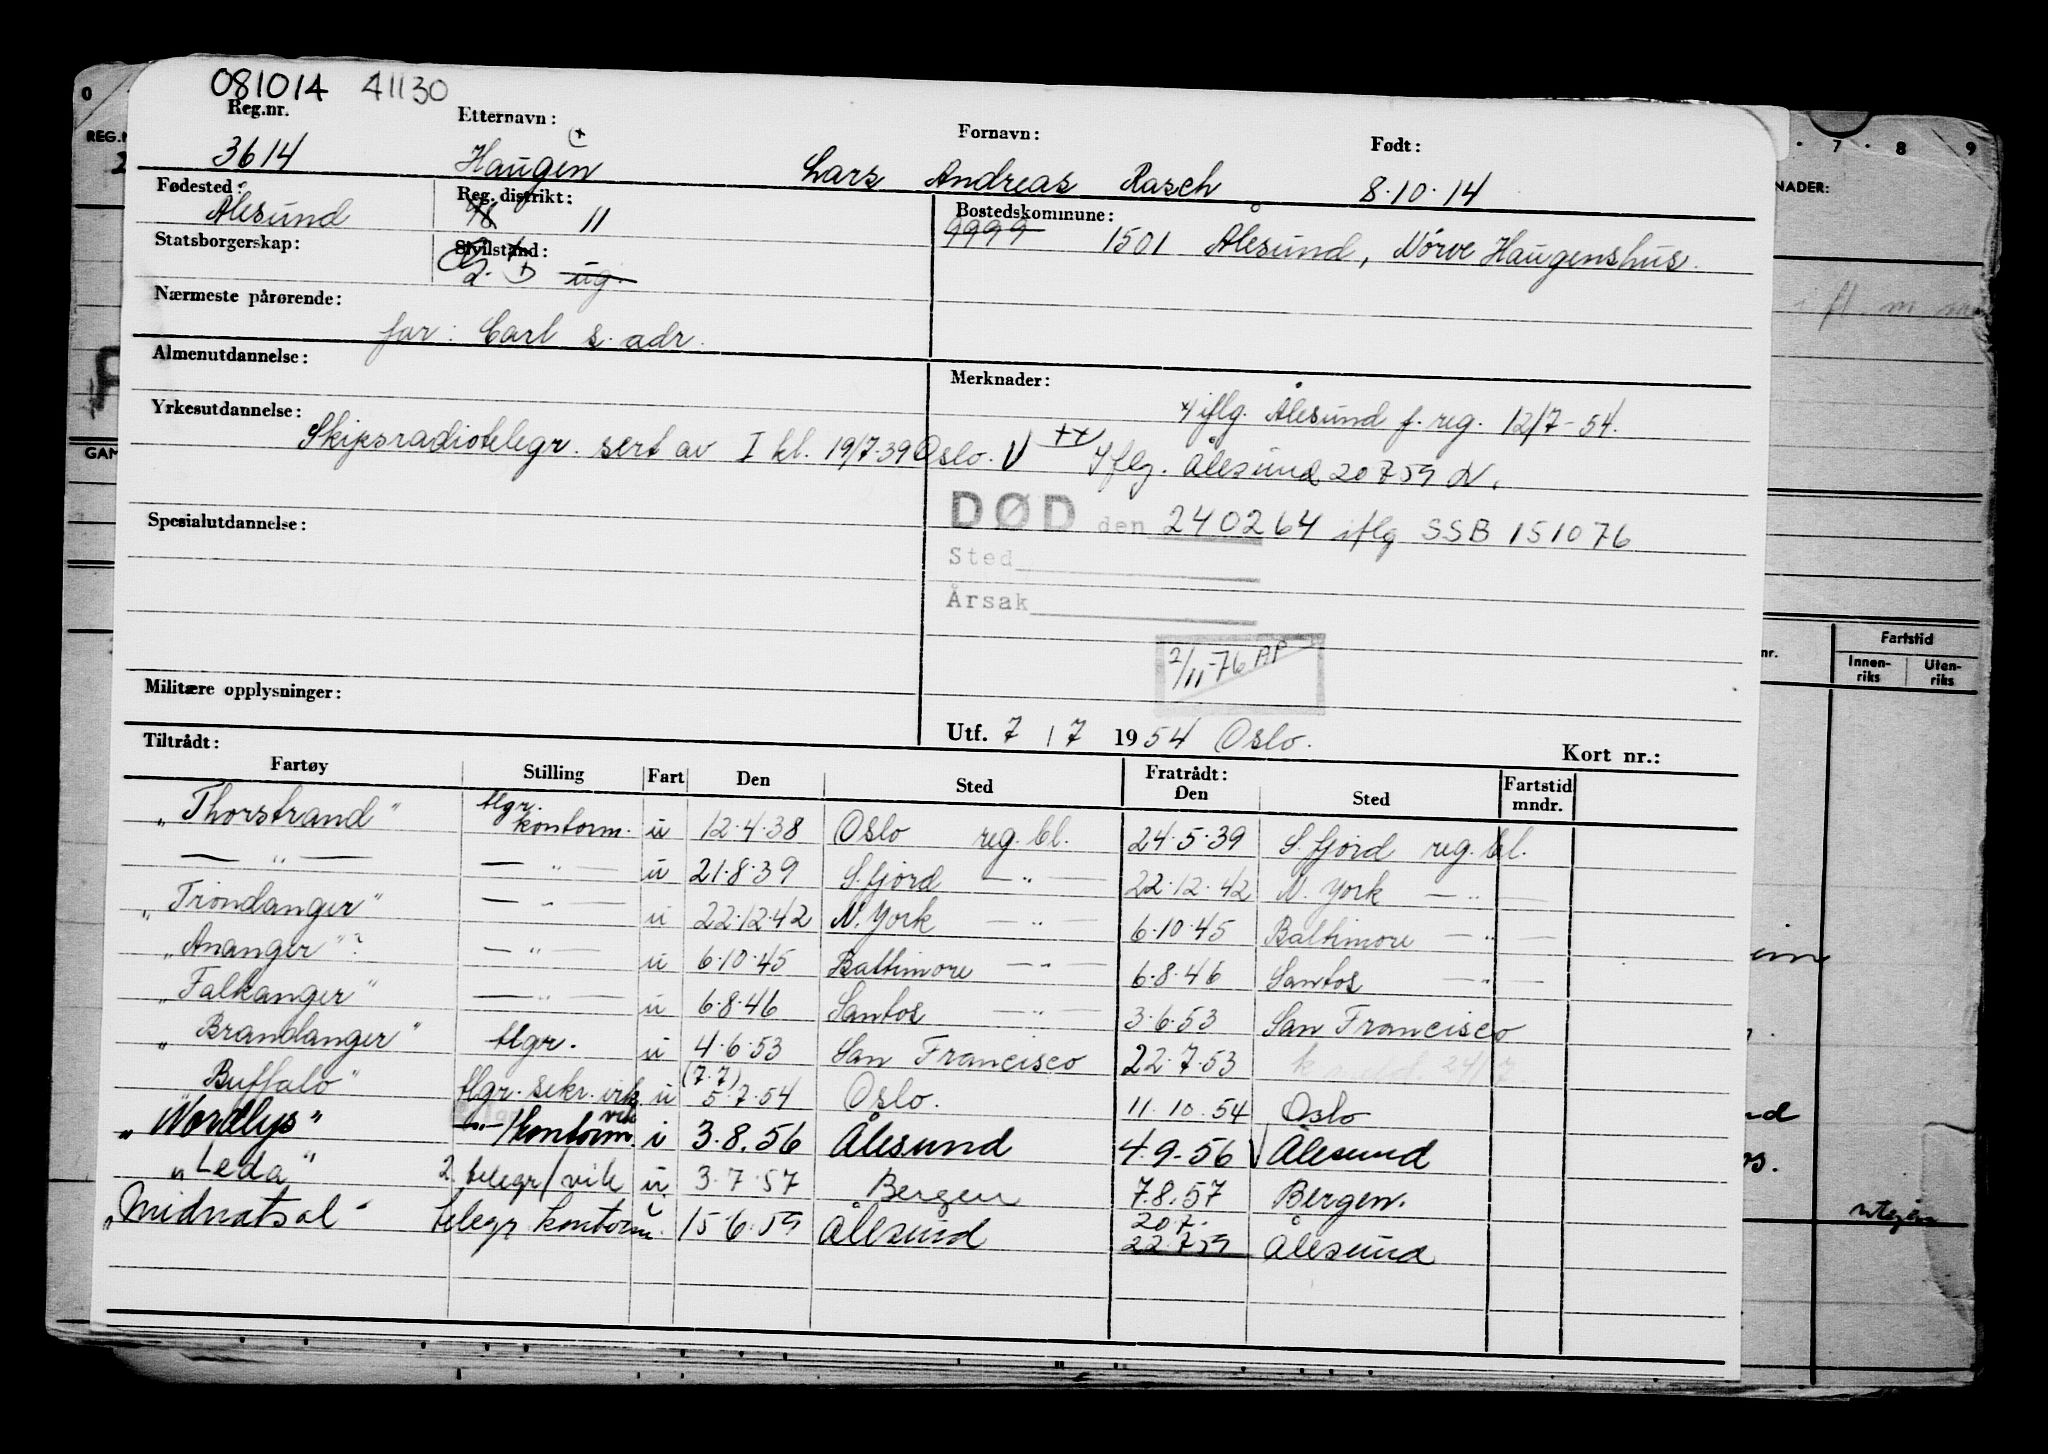 081014 41130
Reg.nr. Etternavn: Fornavn: Født:
3614 Haugen Lars Andreas Rasch 8.10.14
Fødested: Reg. distrikt: Bostedskommune:
Ålesund 11 9999 1501 Ålesund, Nørve Haugenshus.
Statsborgerskap: Sivilstand:
ug.
Nærmeste pårørende:
far: Carl s. adr.
Almenutdannelse: Merknader:
x/ iflg. Ålesund f. reg. 12/7-54.
Yrkesutdannelse:
Skipsradiotelegr. sert av I kl. 19/7-39 Oslo. V xx/ Iflg. Ålesund 20 7 59
DØD den 240264 iflg SSB 151076
Spesialutdannelse:
Sted
Årsak
2/11-76 AP
Militære opplysninger:
Utf. 7 / 7 1954 Oslo.
Tiltrådt: Kort nr.:
Fartøy Stilling Fart Den Sted Fratrådt: Den Sted Fartstid mndr.
"Thorstrand" tlgr. kontorm. u 12.4.38 Oslo reg. bl. 24.5.39 S. fjord reg. bl.
— " — — " — u 21.8.39 S. fjord — " — 22.12.42 N. York — " —
"Trondanger" — " — u 22.12.42 N. York — " — 6.10.45 Baltimore — " —
"Ananger"? — " — u 6.10.45 Baltimore — " — 6.8.46 Santos — " —
"Falkanger" — " — u 6.8.46 Santos — " — 3.6.53 San Francisco
"Brandanger" tlgr. u 4.6.53 San Francisco 22.7.53
"Buffalo" tlgr. sekr. vik. u (7.7) 5.7.54 Oslo. 11.10.54 Oslo
"Nordlys" — " — /kontorm. vik i 3.8.56 Ålesund 4.9.56 Ålesund
"Leda" 2. telegr/vik u 3.7.57 Bergen 7.8.57 Bergen.
"Midnatsol" telegr kontorm. u 15.6.59 Ålesund 20.7. 22.7.59 Ålesund
0 7 . 8 9
Fartstid
Innen-riks Uten-riks